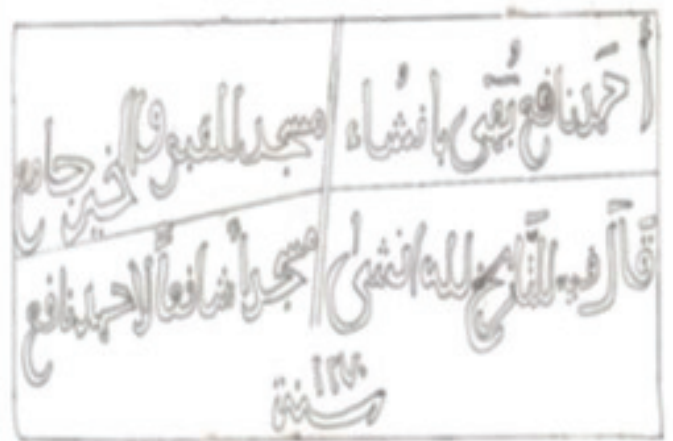 أحمد نافع بإنشاء مسجد والخير جامع
قال فيه للتاريخ لله انشى مسجداً شافعاً لاحمد نافع
سنة ١٢٧٠